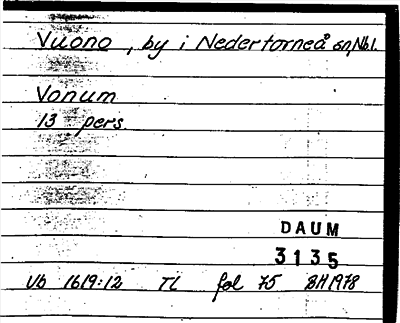 Vuono, by i Nedertorneå sn, Nbl.
Vonum
13 pers
DAUM
3135
Vb 1619:12 TL fol 75 BH 1978